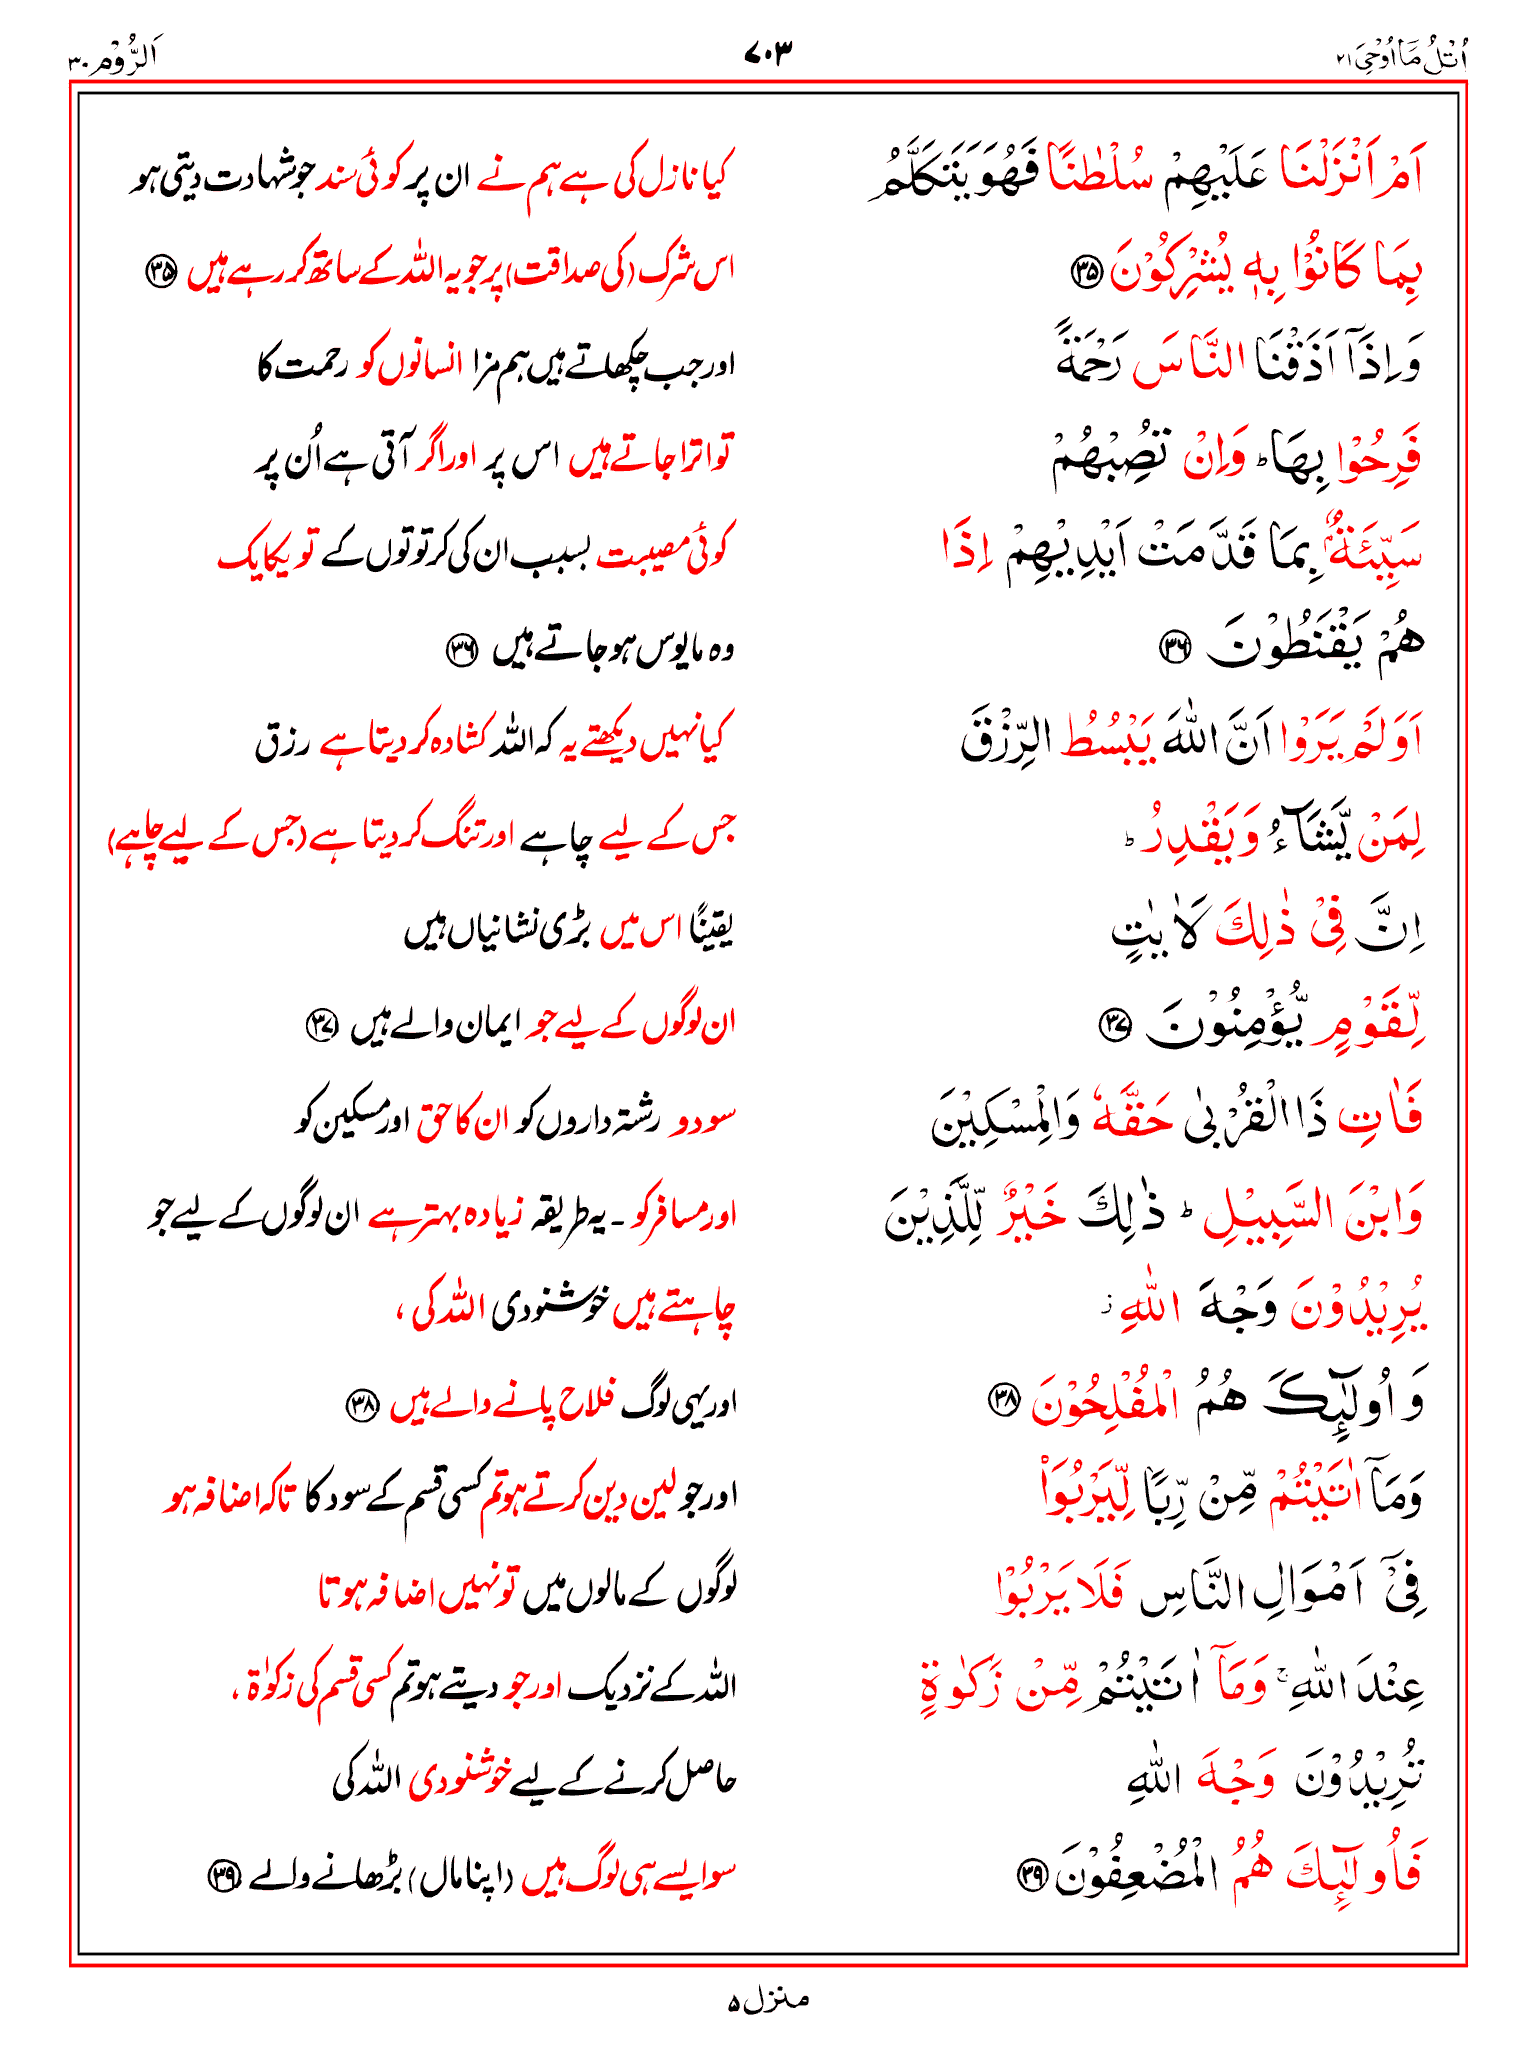 اُتْلُ مَآ اُوْحِیَ ۲۱ ۷۰۳ اَلرُّوْم ۳۰
اَمْ اَنْزَلْنَا عَلَیْهِمْ سُلْطٰنًا فَهُوَ یَتَكَلَّمُ کیا نازل کی ہے ہم نے ان پر کوئی سند جو شہادت دیتی ہو
بِمَا كَانُوْا بِهٖ یُشْرِكُوْنَ ۳۵ اس شرک (کی صداقت) پر جو یہ اللہ کے ساتھ کر رہے ہیں ۳۵
وَاِذَاۤ اَذَقْنَا النَّاسَ رَحْمَةً اور جب چکھاتے ہیں ہم مزا انسانوں کو رحمت کا
فَرِحُوْا بِهَا ؕ وَاِنْ تُصِبْهُمْ تو اترا جاتے ہیں اس پر اور اگر آتی ہے اُن پر
سَیِّئَةٌۢ بِمَا قَدَّمَتْ اَیْدِیْهِمْ اِذَا کوئی مصیبت بسبب ان کی کرتوتوں کے تو یکایک
هُمْ یَقْنَطُوْنَ ۳۶ وہ مایوس ہو جاتے ہیں ۳۶
اَوَلَمْ یَرَوْا اَنَّ اللّٰهَ یَبْسُطُ الرِّزْقَ کیا نہیں دیکھتے یہ کہ اللہ کشادہ کر دیتا ہے رزق
لِمَنْ یَّشَآءُ وَیَقْدِرُ ؕ جس کے لیے چاہے اور تنگ کر دیتا ہے (جس کے لیے چاہے)
اِنَّ فِیْ ذٰلِكَ لَاٰیٰتٍ یقینًا اس میں بڑی نشانیاں ہیں
لِّقَوْمٍ یُّؤْمِنُوْنَ ۳۷ ان لوگوں کے لیے جو ایمان والے ہیں ۳۷
فَاٰتِ ذَا الْقُرْبٰی حَقَّهٗ وَالْمِسْكِیْنَ سو دو رشتہ داروں کو ان کا حق اور مسکین کو
وَابْنَ السَّبِیْلِ ؕ ذٰلِكَ خَیْرٌ لِّلَّذِیْنَ اور مسافر کو ۔ یہ طریقہ زیادہ بہتر ہے ان لوگوں کے لیے جو
یُرِیْدُوْنَ وَجْهَ اللّٰهِ ز چاہتے ہیں خوشنودی اللہ کی ،
وَاُولٰٓئِكَ هُمُ الْمُفْلِحُوْنَ ۳۸ اور یہی لوگ فلاح پانے والے ہیں ۳۸
وَمَاۤ اٰتَیْتُمْ مِّنْ رِّبًا لِّیَرْبُوَا۠ اور جو لین دین کرتے ہو تم کسی قسم کے سود کا تاکہ اضافہ ہو
فِیْۤ اَمْوَالِ النَّاسِ فَلَا یَرْبُوْا لوگوں کے مالوں میں تو نہیں اضافہ ہوتا
عِنْدَ اللّٰهِ ۚ وَمَاۤ اٰتَیْتُمْ مِّنْ زَكٰوةٍ اللہ کے نزدیک اور جو دیتے ہو تم کسی قسم کی زکوٰۃ ،
تُرِیْدُوْنَ وَجْهَ اللّٰهِ حاصل کرنے کے لیے خوشنودی اللہ کی
فَاُولٰٓئِكَ هُمُ الْمُضْعِفُوْنَ ۳۹ سو ایسے ہی لوگ ہیں (اپنا مال) بڑھانے والے ۳۹
منزل ۵